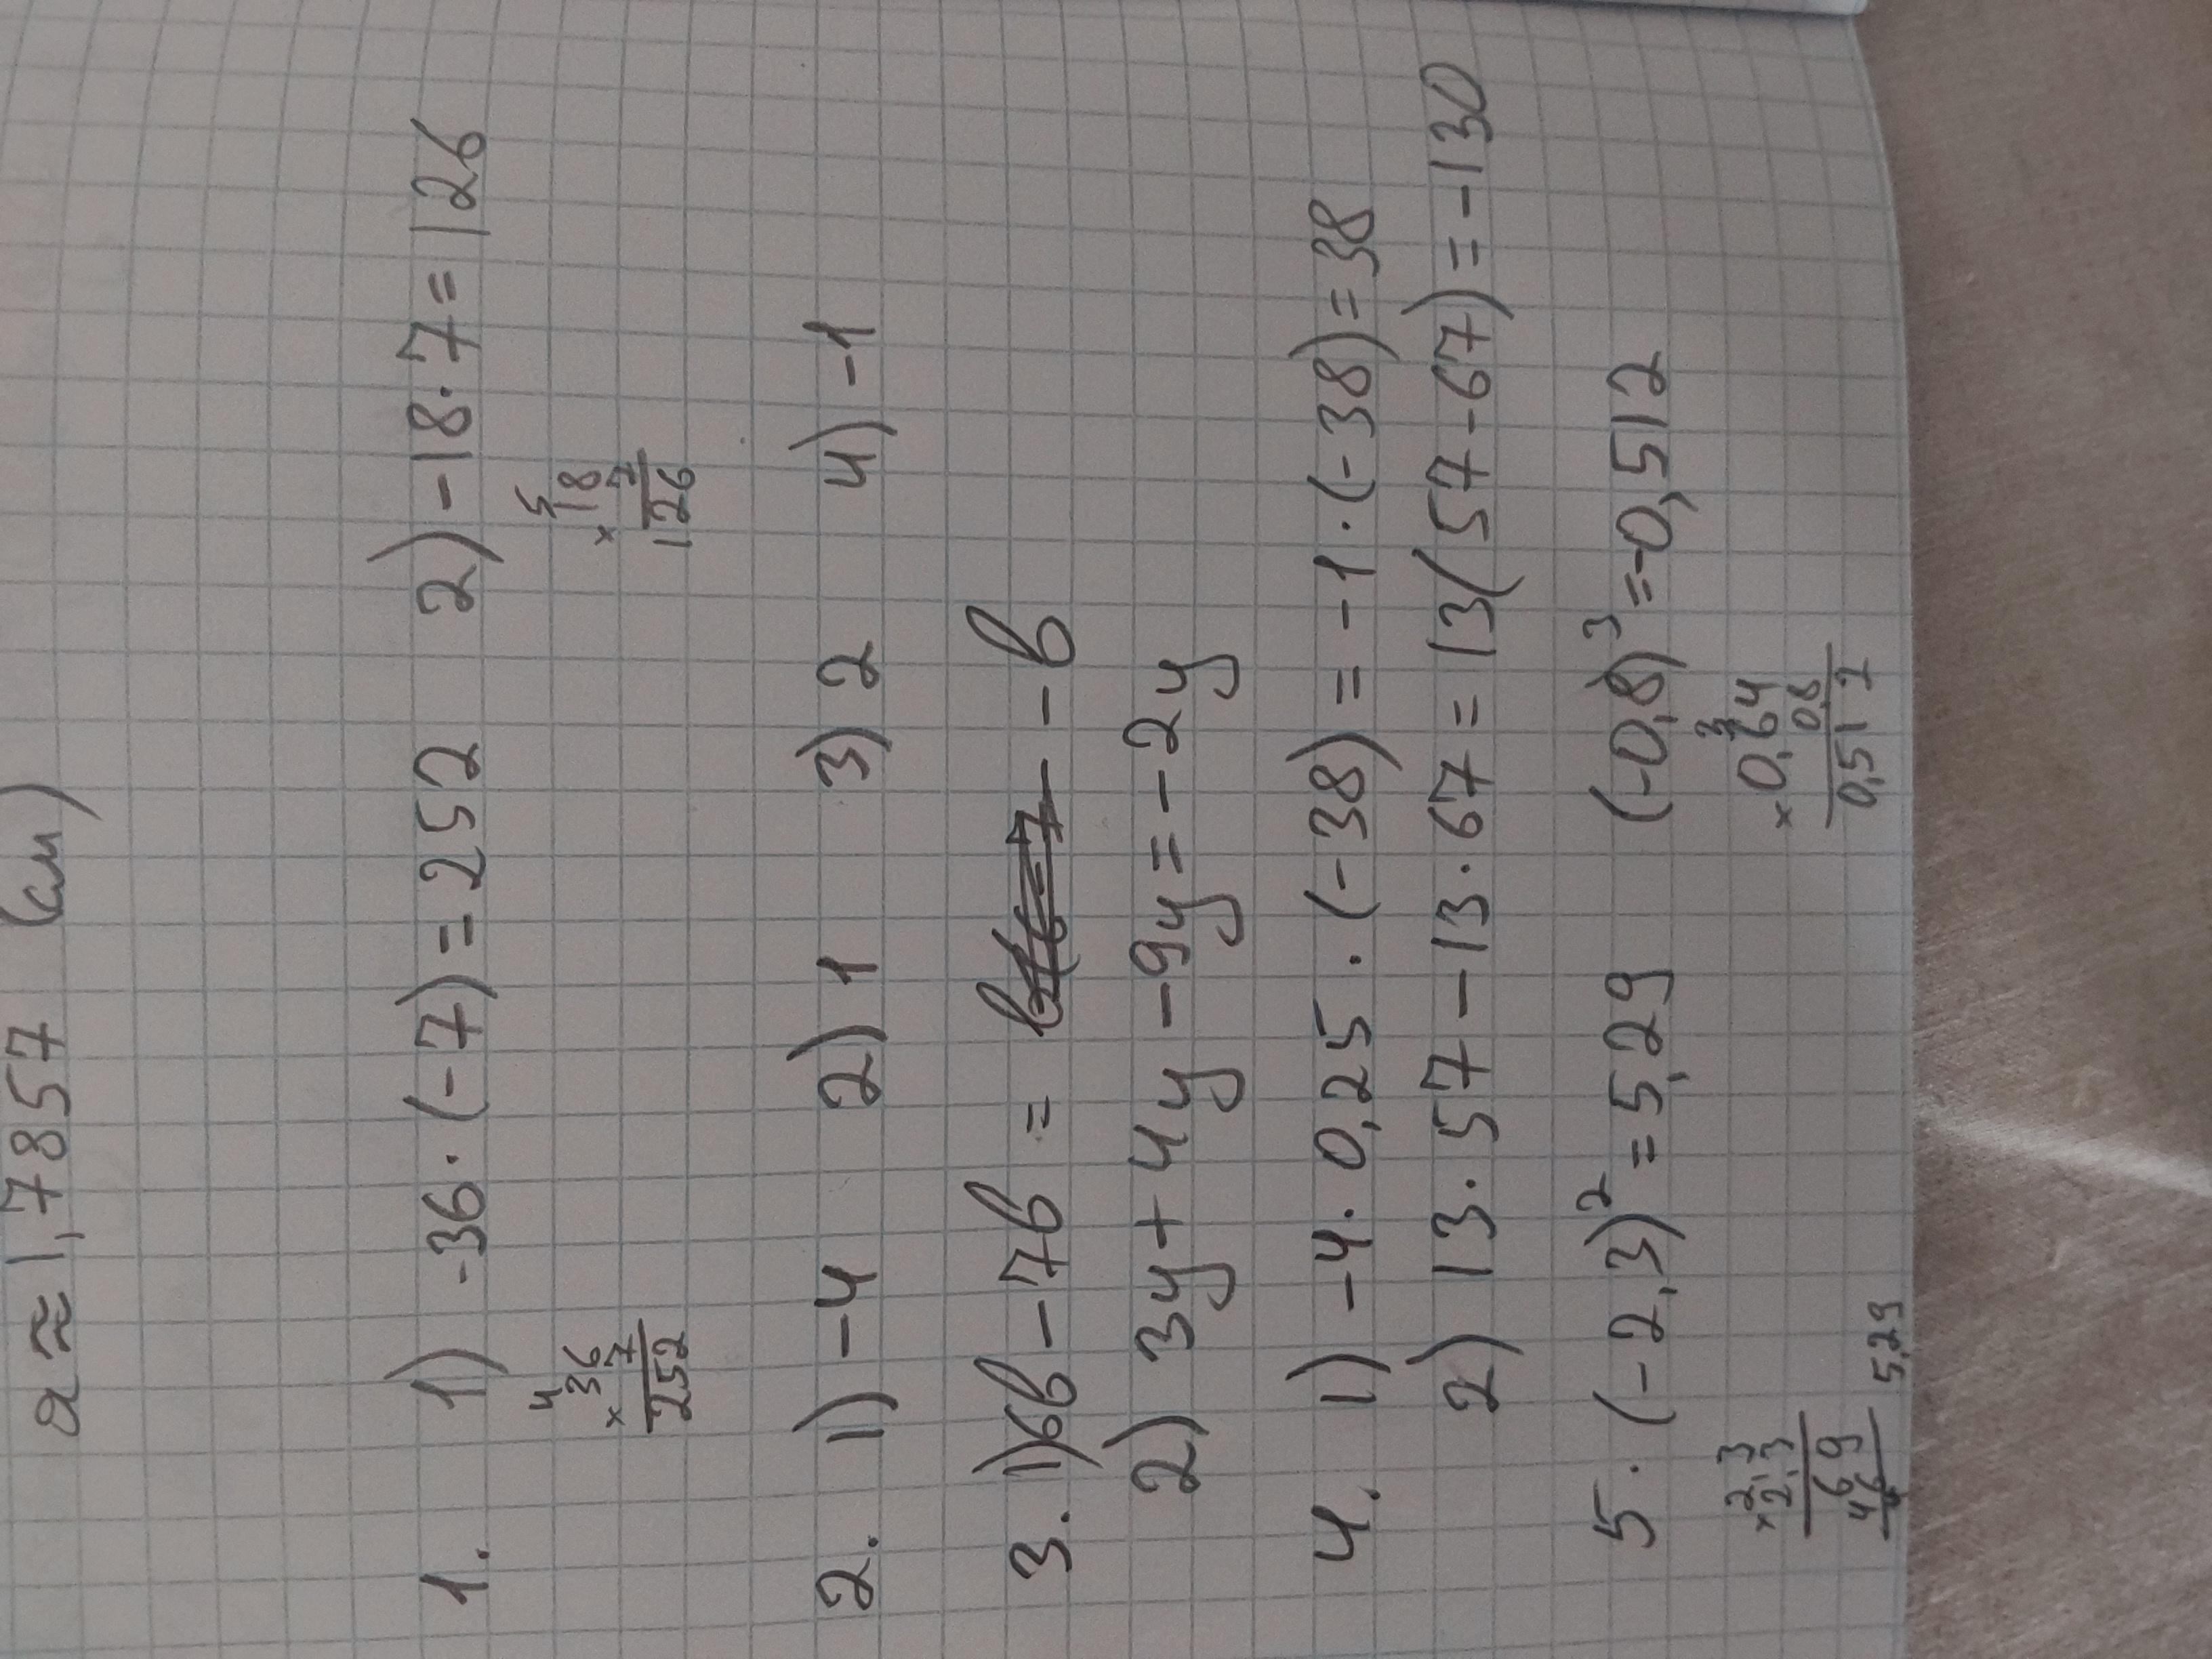 a ≈ 1,7857 (см)
1. 1) -36·(-7)=252 2) -18·7=126
4 5
×36 ×18
7 7
252 126
2. 1) -4 2) 1 3) 2 4) -1
3. 1) 6в - 7в = - в
2) 3y+4y-9y=-2y
4. 1) -4·0,25·(-38)=-1·(-38)=38
2) 13·57-13·67=13(57-67)=-130
5. (-2,3)²=5,29 (-0,8)³=-0,512
×2,3 ×0,64
2,3 0,8
69 0,512
46
5,29